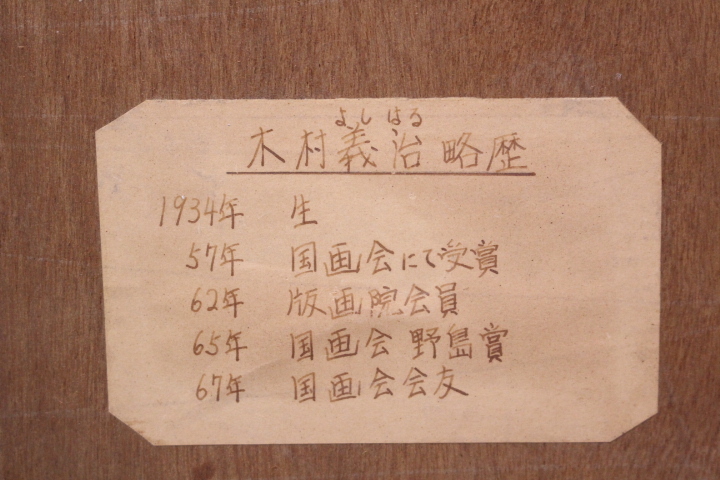 よしはる
木村義治略歴
1934年 生
57年 国画会にて受賞
62年 版画院会員
65年 国画会 野島賞
67年 国画会会友